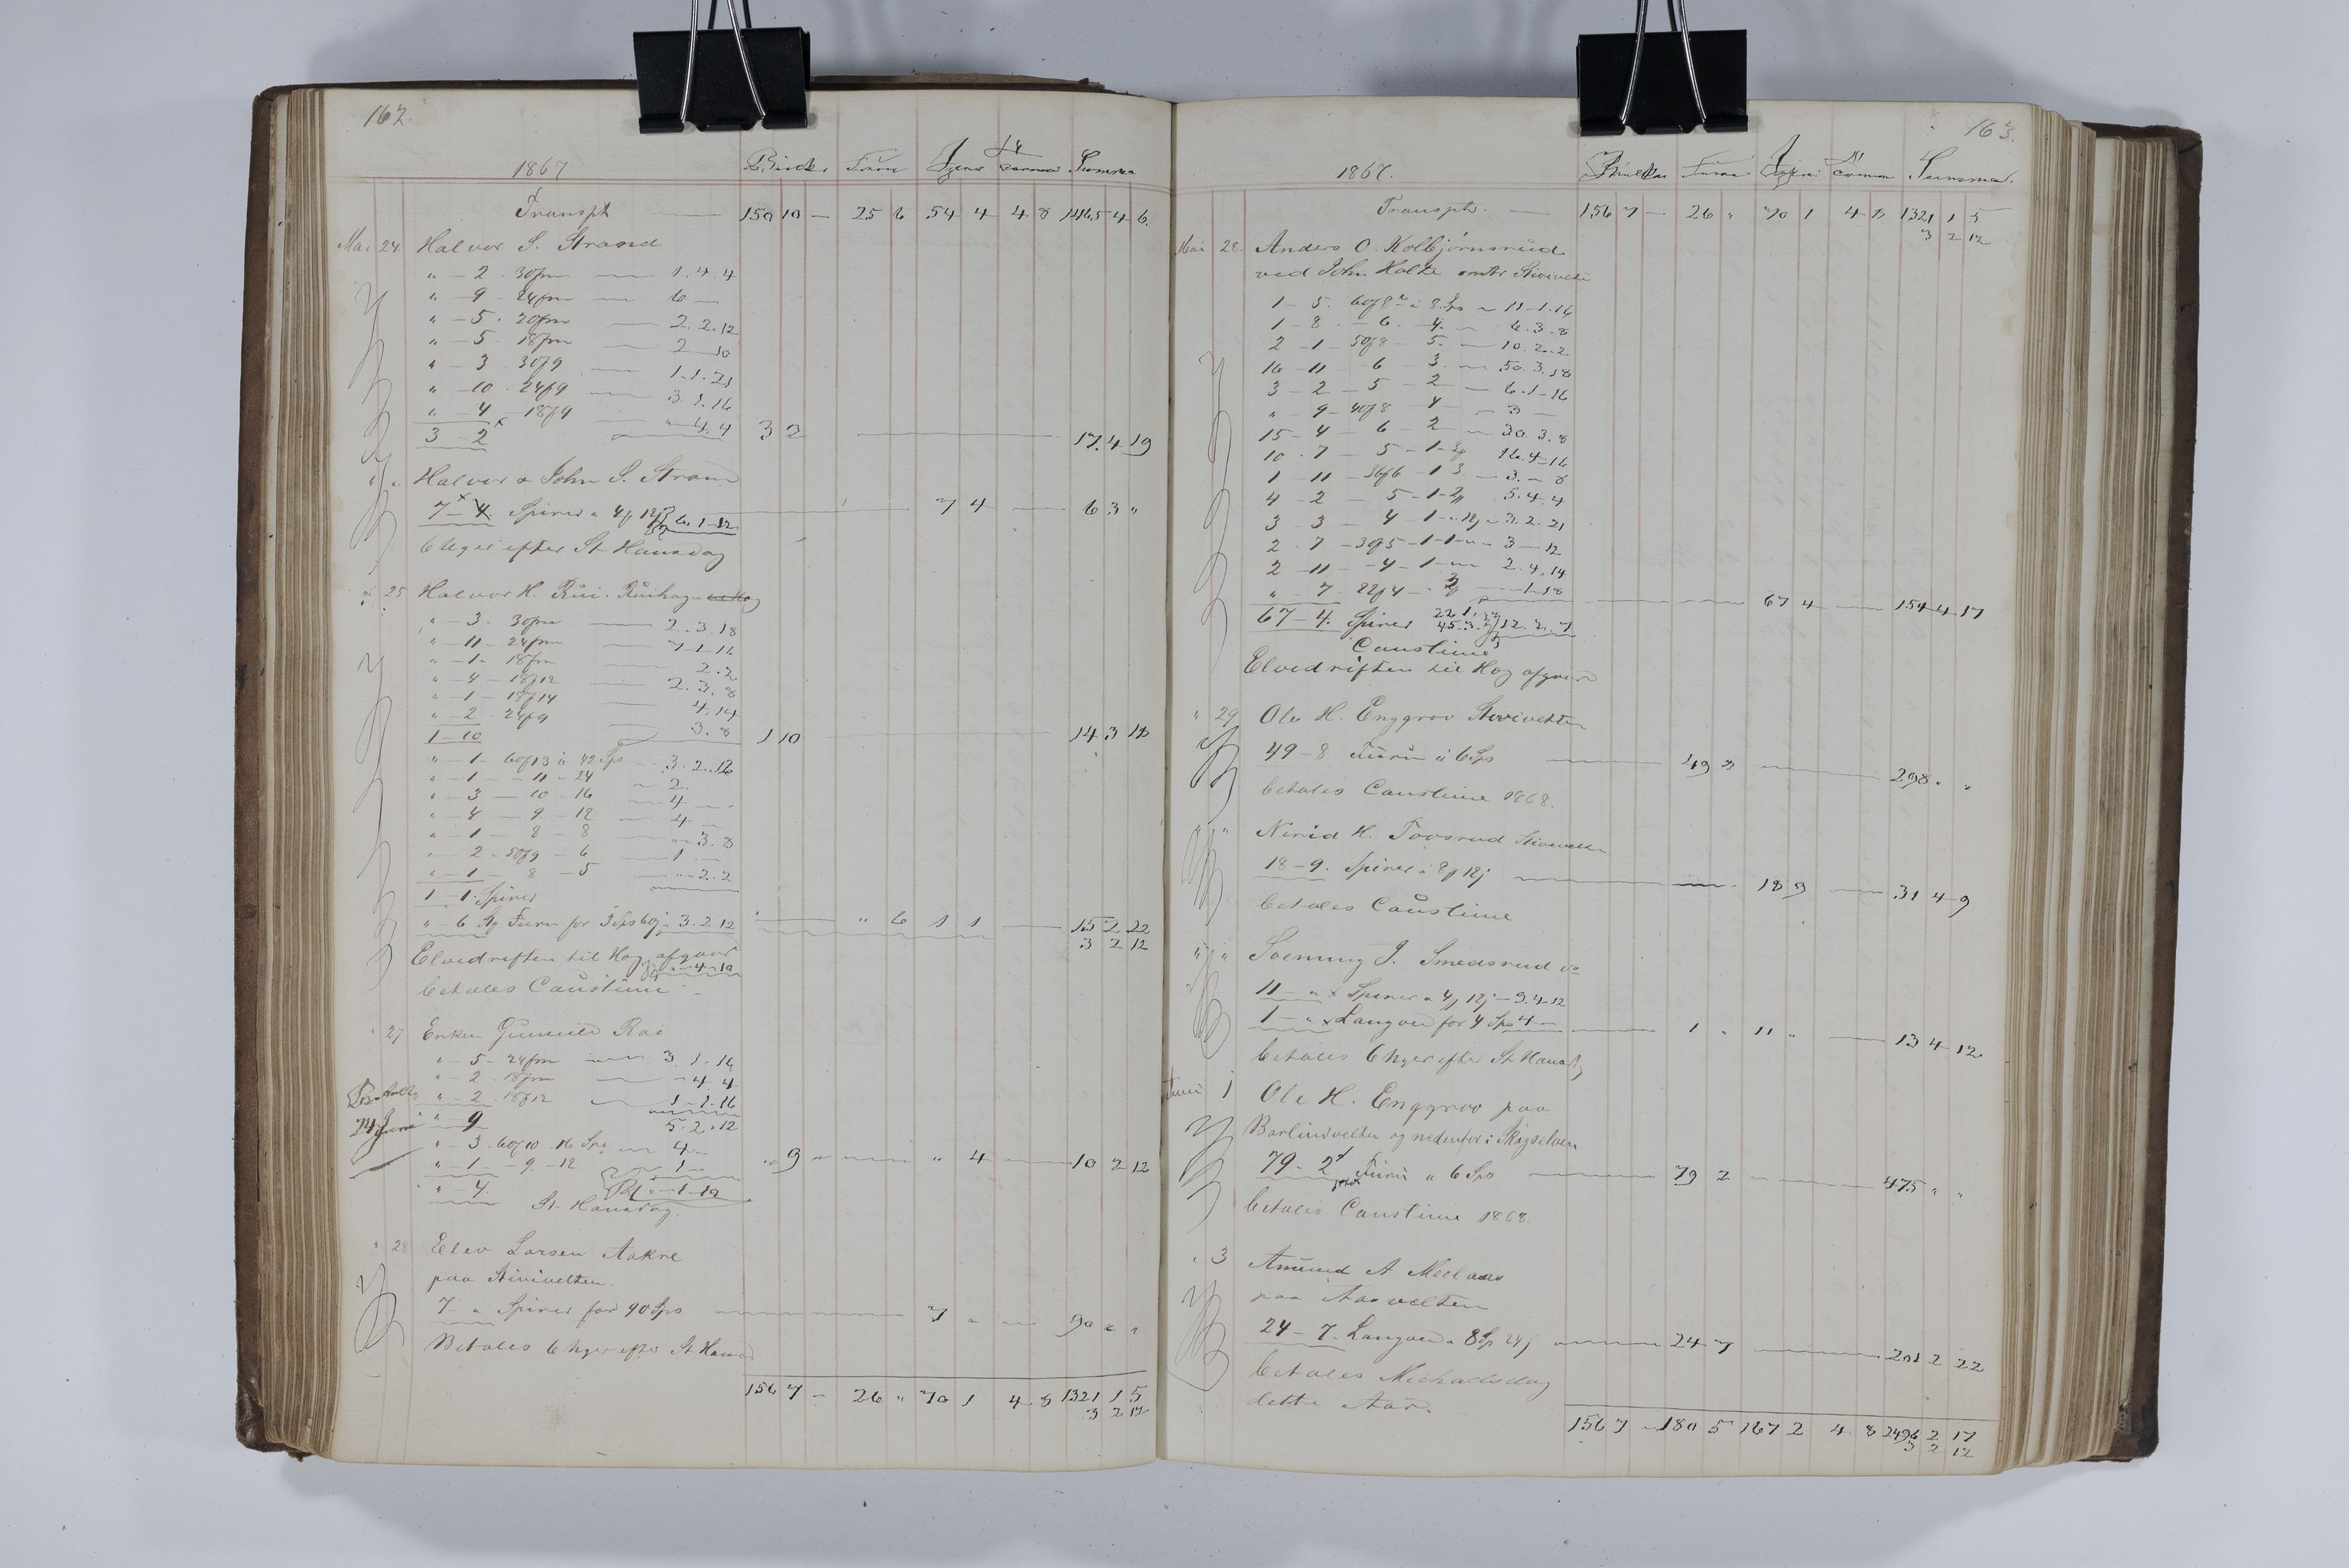 162.
1867
Furu
Summa
Transpt — 150 10 — 25 6 54 4 4 8 1165 4 6.
Mai 24 Halvor S. Strand
" — 2 . 30fm — 1.4.4
" — 9 . 24fm — 6 —
" — 5 . 20fm — 2.2.12
" — 5 . 18fm — 2 — 10
" — 3 . 30f9 — 1.1.21
" — 10 . 24f9 — 3.1.16
" — 4 — 18f9 — " 4.4
3 — 2 3 2 — 17.4 19
" " Halvor & John S. Strand
7 — 4. Spirer a 4f 12 — 7 4 — 6 3 "
6 Uger efter St Hansdag
" 25 Halvor H. Rui. Ruihagen
" — 3 . 30fm — 2.3.18
" — 11 — 24fm — 7.1.16
" — 1 — 18fm — 2.2
" — 4 — 18f12 — 2.3.8
" — 1 — 18f14 — 4.14
" — 2 . 24f9 — 3.8
1 — 10 1 10 — 14 3 18
" — 1 — 60f13 a 42 Sps — 3.2.12
" — 1 — — 11 — 24 — 2.
" — 3 — 10 — 16 — 4 —
" — 4 — 9 — 12 — 4 —
" — 1 — 8 — 8 — " 3.8
" — 2 . 50f9 — 6 — 1 —
" — 1 — 8 — 5 — " 2.2
1 — 1 Spirer
" — 6 Furu for 3 Sps 60j — 3.2.12 — " 6 1 1 — 15 2 22
3 2 12
Elvedriften til Hag afgaar
betales Caustime
" 27 Enken Gunnild Rui
" — 5 — 24fm — 3.1.16
" — 2 . 18fm — " 4.4
" — 2 . 18f12 — 1.1.16
24 Juni " — 9 5.2.12
" — 3 . 60f10 16 Sps — 4 —
" — 1 — 9 — 12 — 1 — " 9 — " 4 — 10 2 12
" — 4.
St Hansdag.
" 28 Elev Larsen Aakre
paa Stivivelten.
7 — " Spirer for 90 Sps — 7 " — 90 " "
Betales 6 Uger efter St Hansd
156 7 — 26 " 70 1 4 8 1321 1 5
3 2 12
163.
1867.
Furu
Summa.
Transpt. — 156 7 — 26 " 70 1 4 8 1321 1 5
3 2 12
Mai 28. Anders O. Kolbjørnsrud
ved John Holte Stivivelte
1 — 5. 60f8 a 8 Sps — 11.1.16
1 — 8 — 6 . 4. — 6.3.8
2 — 1 — 50f8 — 5. — 10.2.2
16 — 11 — 6 3. — 50.3.18
3 — 2 — 5 — 2 — 6.1.16
" 9 — 40f8 4 — 3 —
15 — 4 — 6 — 2 — 30.3.8
10 . 7 — 5 — 1 — 16.4.16
1 — 11 — 36f6 — 1 3. — 3. — 8
4 — 2 — 5 — 1 — 5.4.4
3 — 3 — 4 1 — 3.2.21
2 . 7 — 30f5 — 1 — 3 — 12
2 — 11 — 4 — 1 — 2.4.14
" — 7 . 22f4 — 1.18
67 — 4. Spirer — 67 4 — 154 4 17
Caustime
Elvedriften til Hag afgaar
" 29 Ole H. Enggrav Stivivelten
49 — 8 Furu a 6 Sps — 49 8 — 298 . "
betales Caustime 1868.
" " Nirid H. Tovsrud Stivivelten
18 — 9. Spirer a 8f 12j — 18 9 — 31 4 9
betales Caustime
" " Svenning J. Smedsrud
11 — " Spirer a 4f 12j — 9.4.12
1 — " Langved for 4 Sps 4 — 1 " 11 " — 13 4 12
betales 6 Uger efter St Hansdg
Juni 1 Ole H. Enggrav paa
Barlindvelten og nedenfor i Skogselven
79 — 2 Furu a 6 Sps — 79 2 — 475 " "
betales Caustime 1868
" 3 Amund A Meelaas
paa Aasvelten
24 — 7. Langved a 8 Sp 24j — 24 7 — 201 2 22
betales Michaelsdag
dette Aar.
156 7 — 180 5 167 2 4 8 2496 2 17
3 2 12